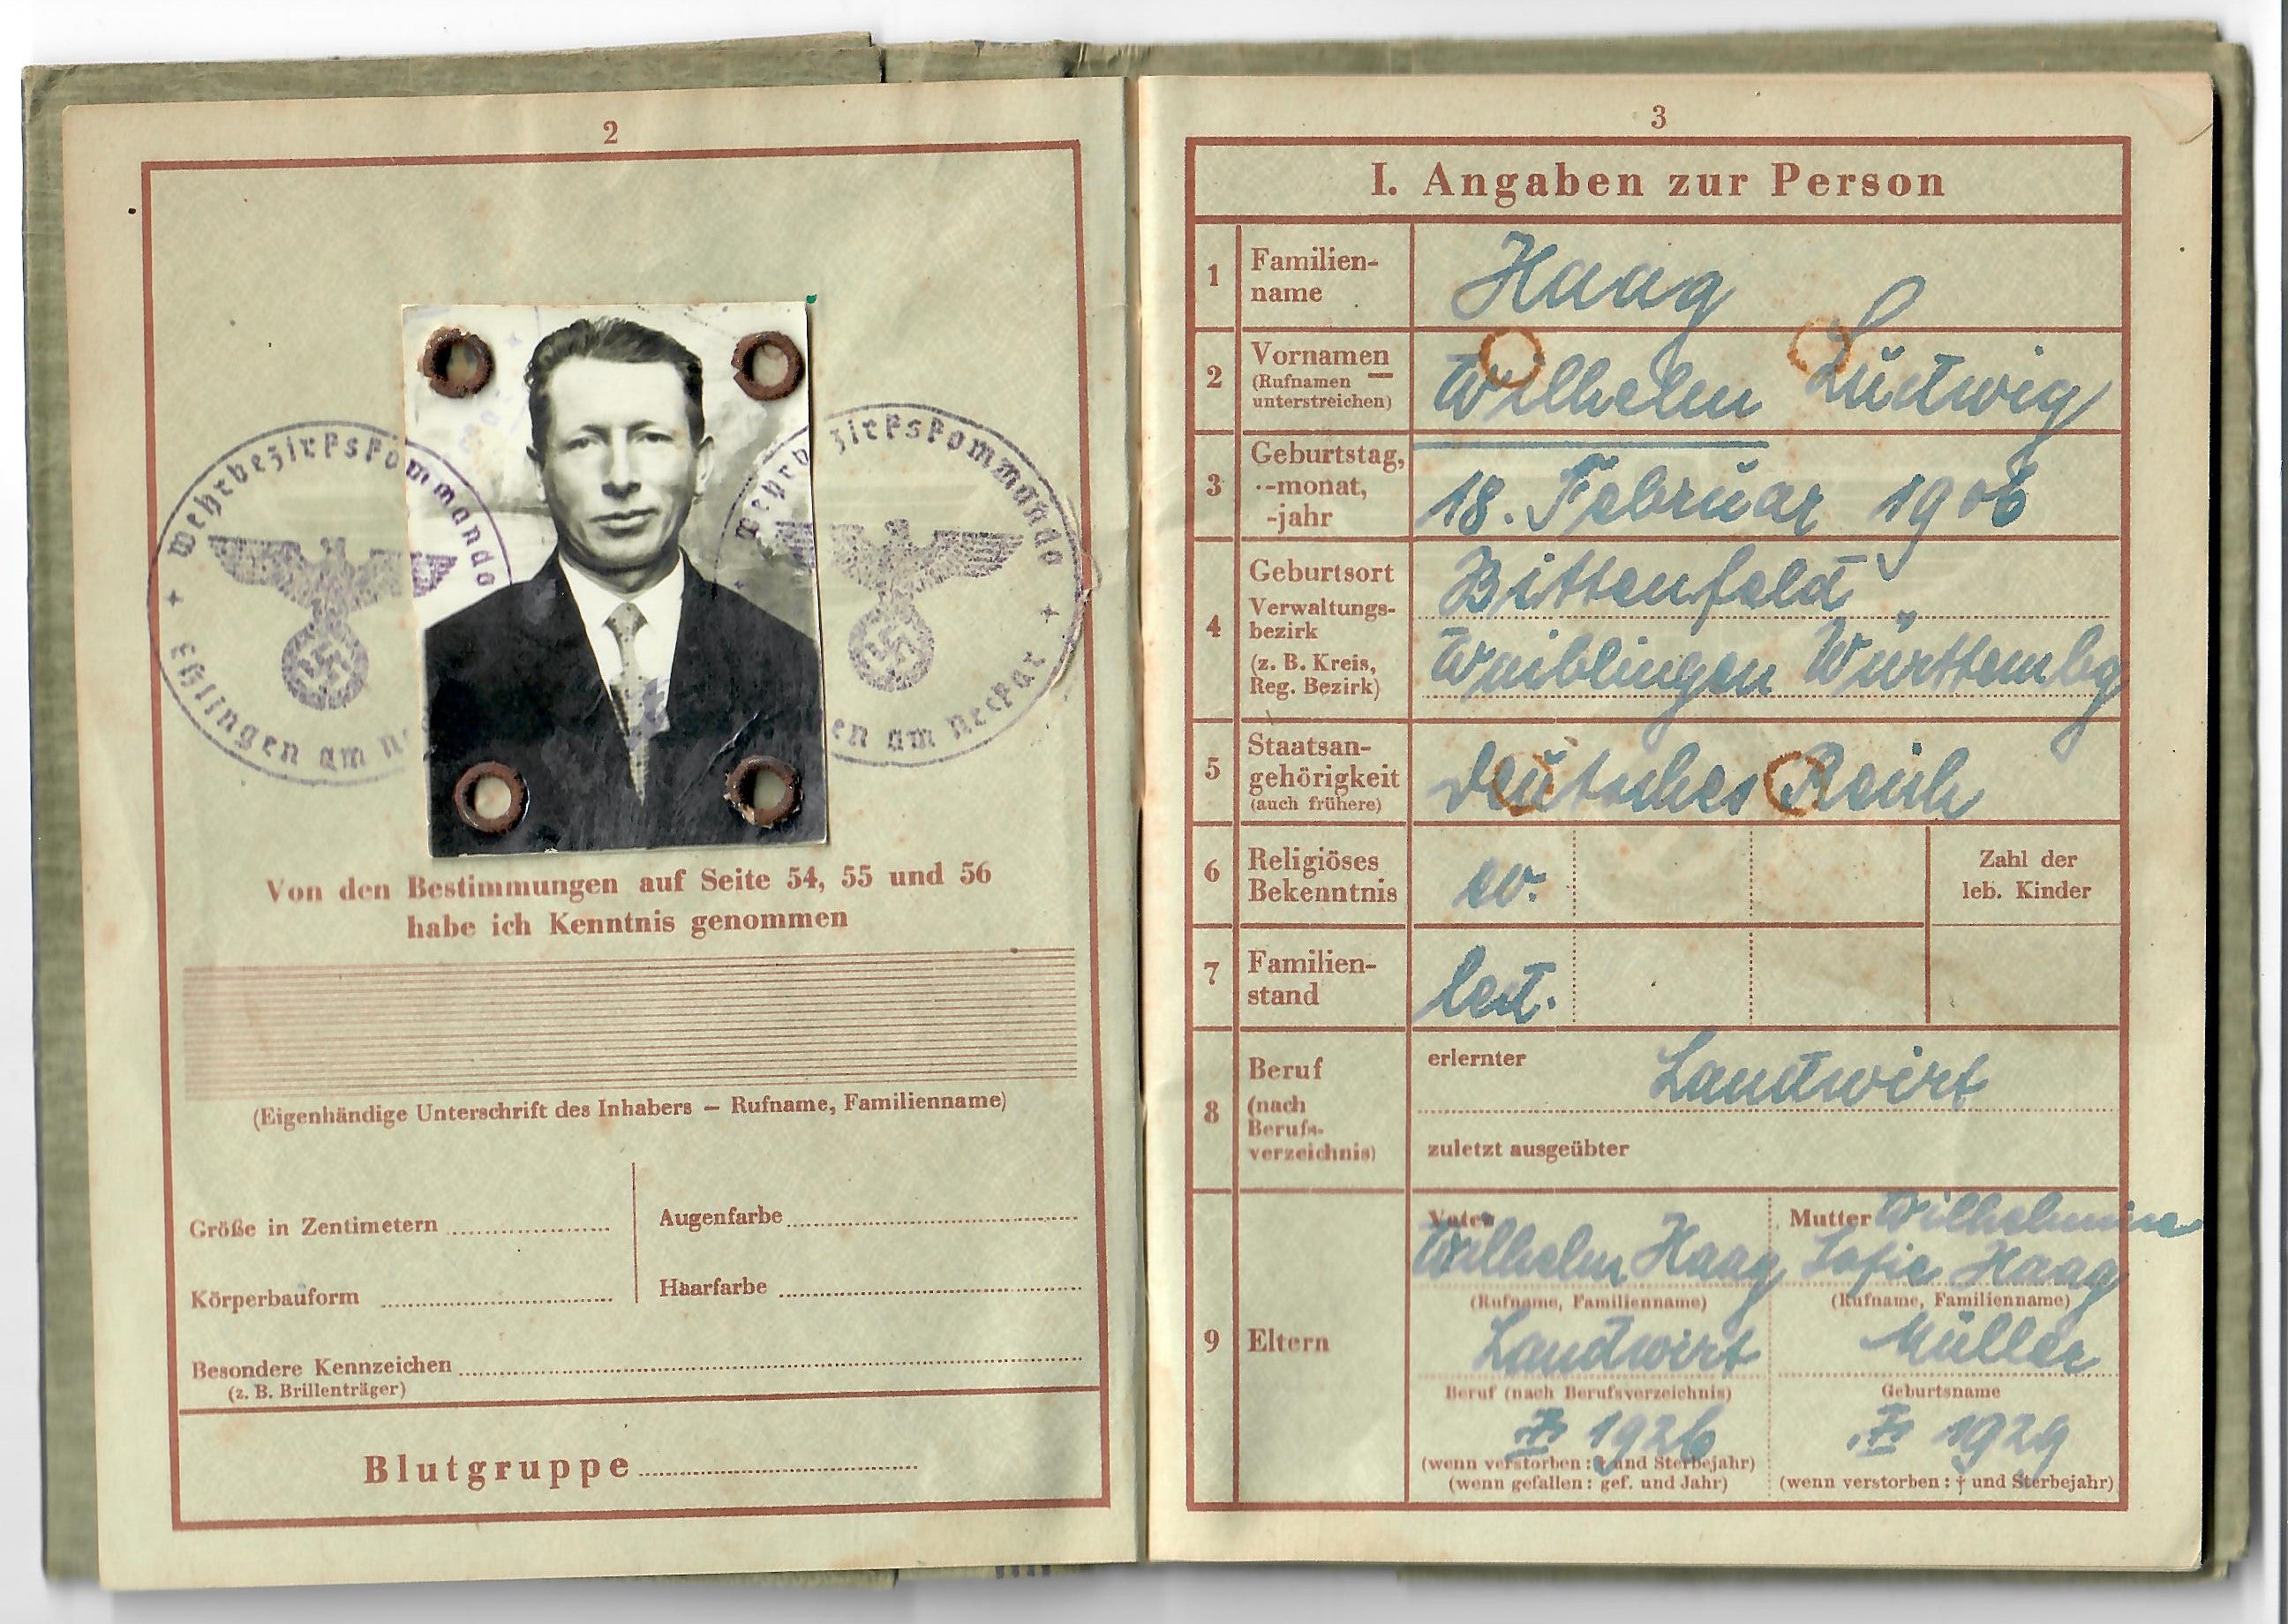 2
Wehrbezirkskommando
Eßlingen am Ne
Wehrbezirkskommando
en am Neckar
Von den Bestimmungen auf Seite 54, 55 und 56
habe ich Kenntnis genommen
(Eigenhändige Unterschrift des Inhabers – Rufname, Familienname)
Größe in Zentimetern
Augenfarbe
Körperbauform
Haarfarbe
Besondere Kennzeichen
(z. B. Brillenträger)
Blutgruppe
3
I. Angaben zur Person
1 Familien-
name
Haag
2 Vornamen
(Rufnamen
unterstreichen)
Wilhelm Ludwig
3 Geburtstag,
-monat,
-jahr
18. Februar 1906
4 Geburtsort
Verwaltungs-
bezirk
(z. B. Kreis,
Reg. Bezirk)
Bittenfeld
Waiblingen Württembg
5 Staatsan-
gehörigkeit
(auch frühere)
Deutsches Reich
6 Religiöses
Bekenntnis
ev.
Zahl der
leb. Kinder
7 Familien-
stand
led.
8 Beruf
(nach
Berufs-
verzeichnis)
erlernter Landwirt
zuletzt ausgeübter
9 Eltern
Vater
Wilhelm Haag
(Rufname, Familienname)
Landwirt
Beruf (nach Berufsverzeichnis)
1926
(wenn verstorben: † und Sterbejahr)
(wenn gefallen: gef. und Jahr)
Mutter Wilhelmine
Sofie Haag
(Rufname, Familienname)
Müller
Geburtsname
1929
(wenn verstorben: † und Sterbejahr)